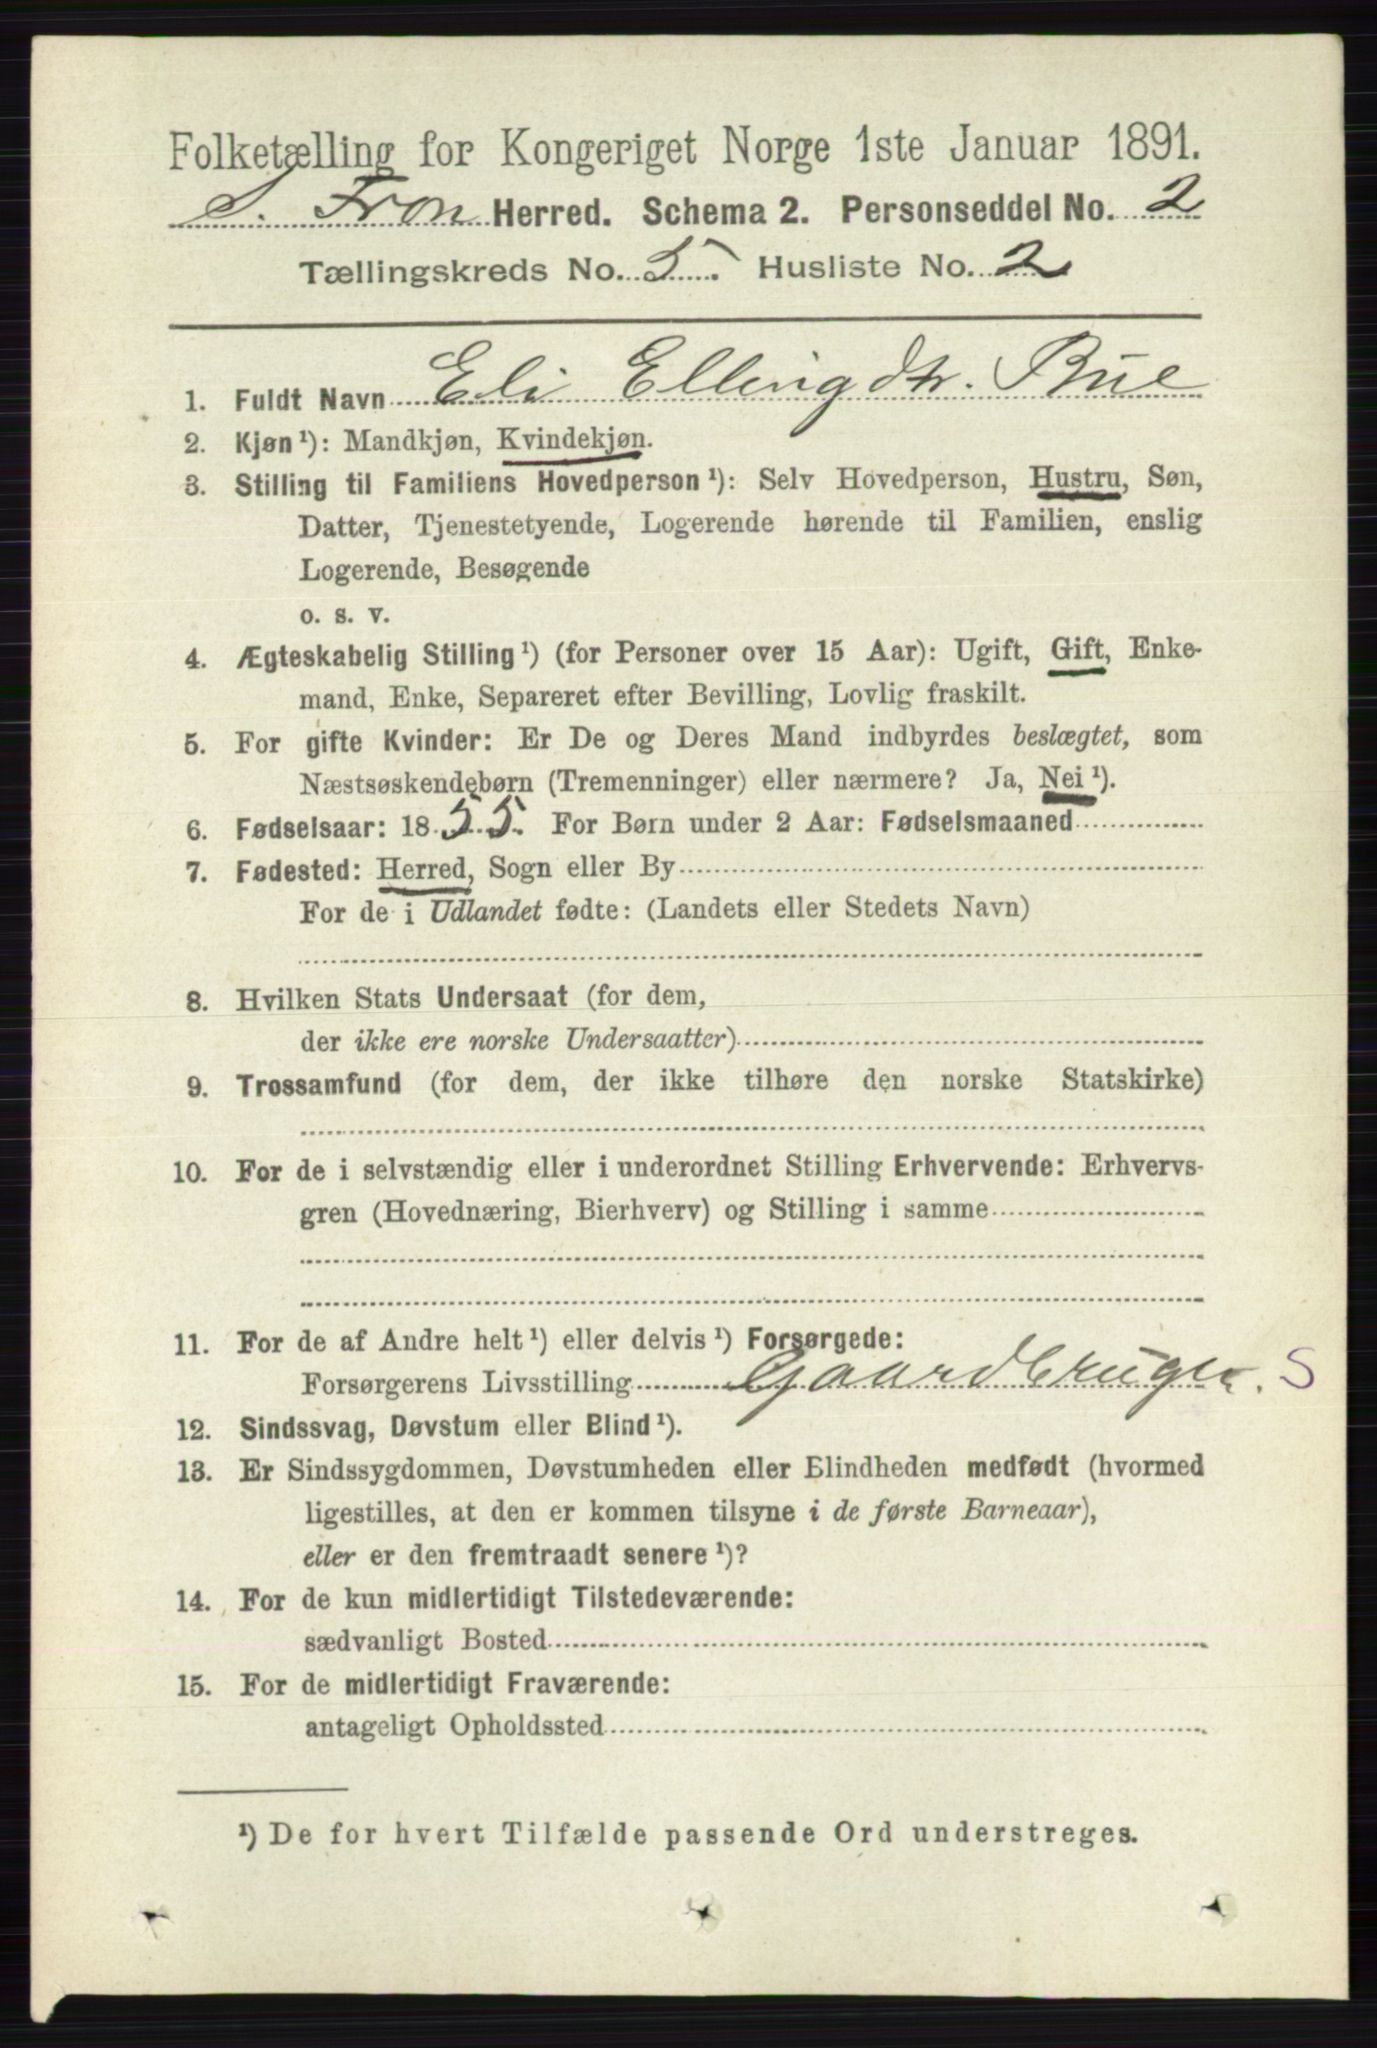 Folketælling for Kongeriget Norge 1ste Januar 1891.
S. Fron Herred. Schema 2. Personseddel No. 2
Tællingskreds No. 5. Husliste No. 2
1. Fuldt Navn Eli Ellingdtr. Bue
2. Kjøn ¹): Mandkjøn, Kvindekjøn.
3. Stilling til Familiens Hovedperson ¹): Selv Hovedperson, Hustru, Søn,
Datter, Tjenestetyende, Logerende hørende til Familien, enslig
Logerende, Besøgende
o. s. v.
4. Ægteskabelig Stilling ¹) (for Personer over 15 Aar): Ugift, Gift, Enke-
mand, Enke, Separeret efter Bevilling, Lovlig fraskilt.
5. For gifte Kvinder: Er De og Deres Mand indbyrdes beslægtet, som
Næstsøskendebørn (Tremenninger) eller nærmere? Ja, Nei ¹).
6. Fødselsaar: 1855. For Børn under 2 Aar: Fødselsmaaned
7. Fødested: Herred, Sogn eller By
For de i Udlandet fødte: (Landets eller Stedets Navn)
8. Hvilken Stats Undersaat (for dem,
der ikke ere norske Undersaatter)
9. Trossamfund (for dem, der ikke tilhøre den norske Statskirke)
10. For de i selvstændig eller i underordnet Stilling Erhvervende: Erhvervs-
gren (Hovednæring, Bierhverv) og Stilling i samme
11. For de af Andre helt ¹) eller delvis ¹) Forsørgede:
Forsørgerens Livsstilling Gaardbruger. S
12. Sindssvag, Døvstum eller Blind ¹).
13. Er Sindssygdommen, Døvstumheden eller Blindheden medfødt (hvormed
ligestilles, at den er kommen tilsyne i de første Barneaar),
eller er den fremtraadt senere ¹)?
14. For de kun midlertidigt Tilstedeværende:
sædvanligt Bosted
15. For de midlertidigt Fraværende:
antageligt Opholdssted
¹) De for hvert Tilfælde passende Ord understreges.